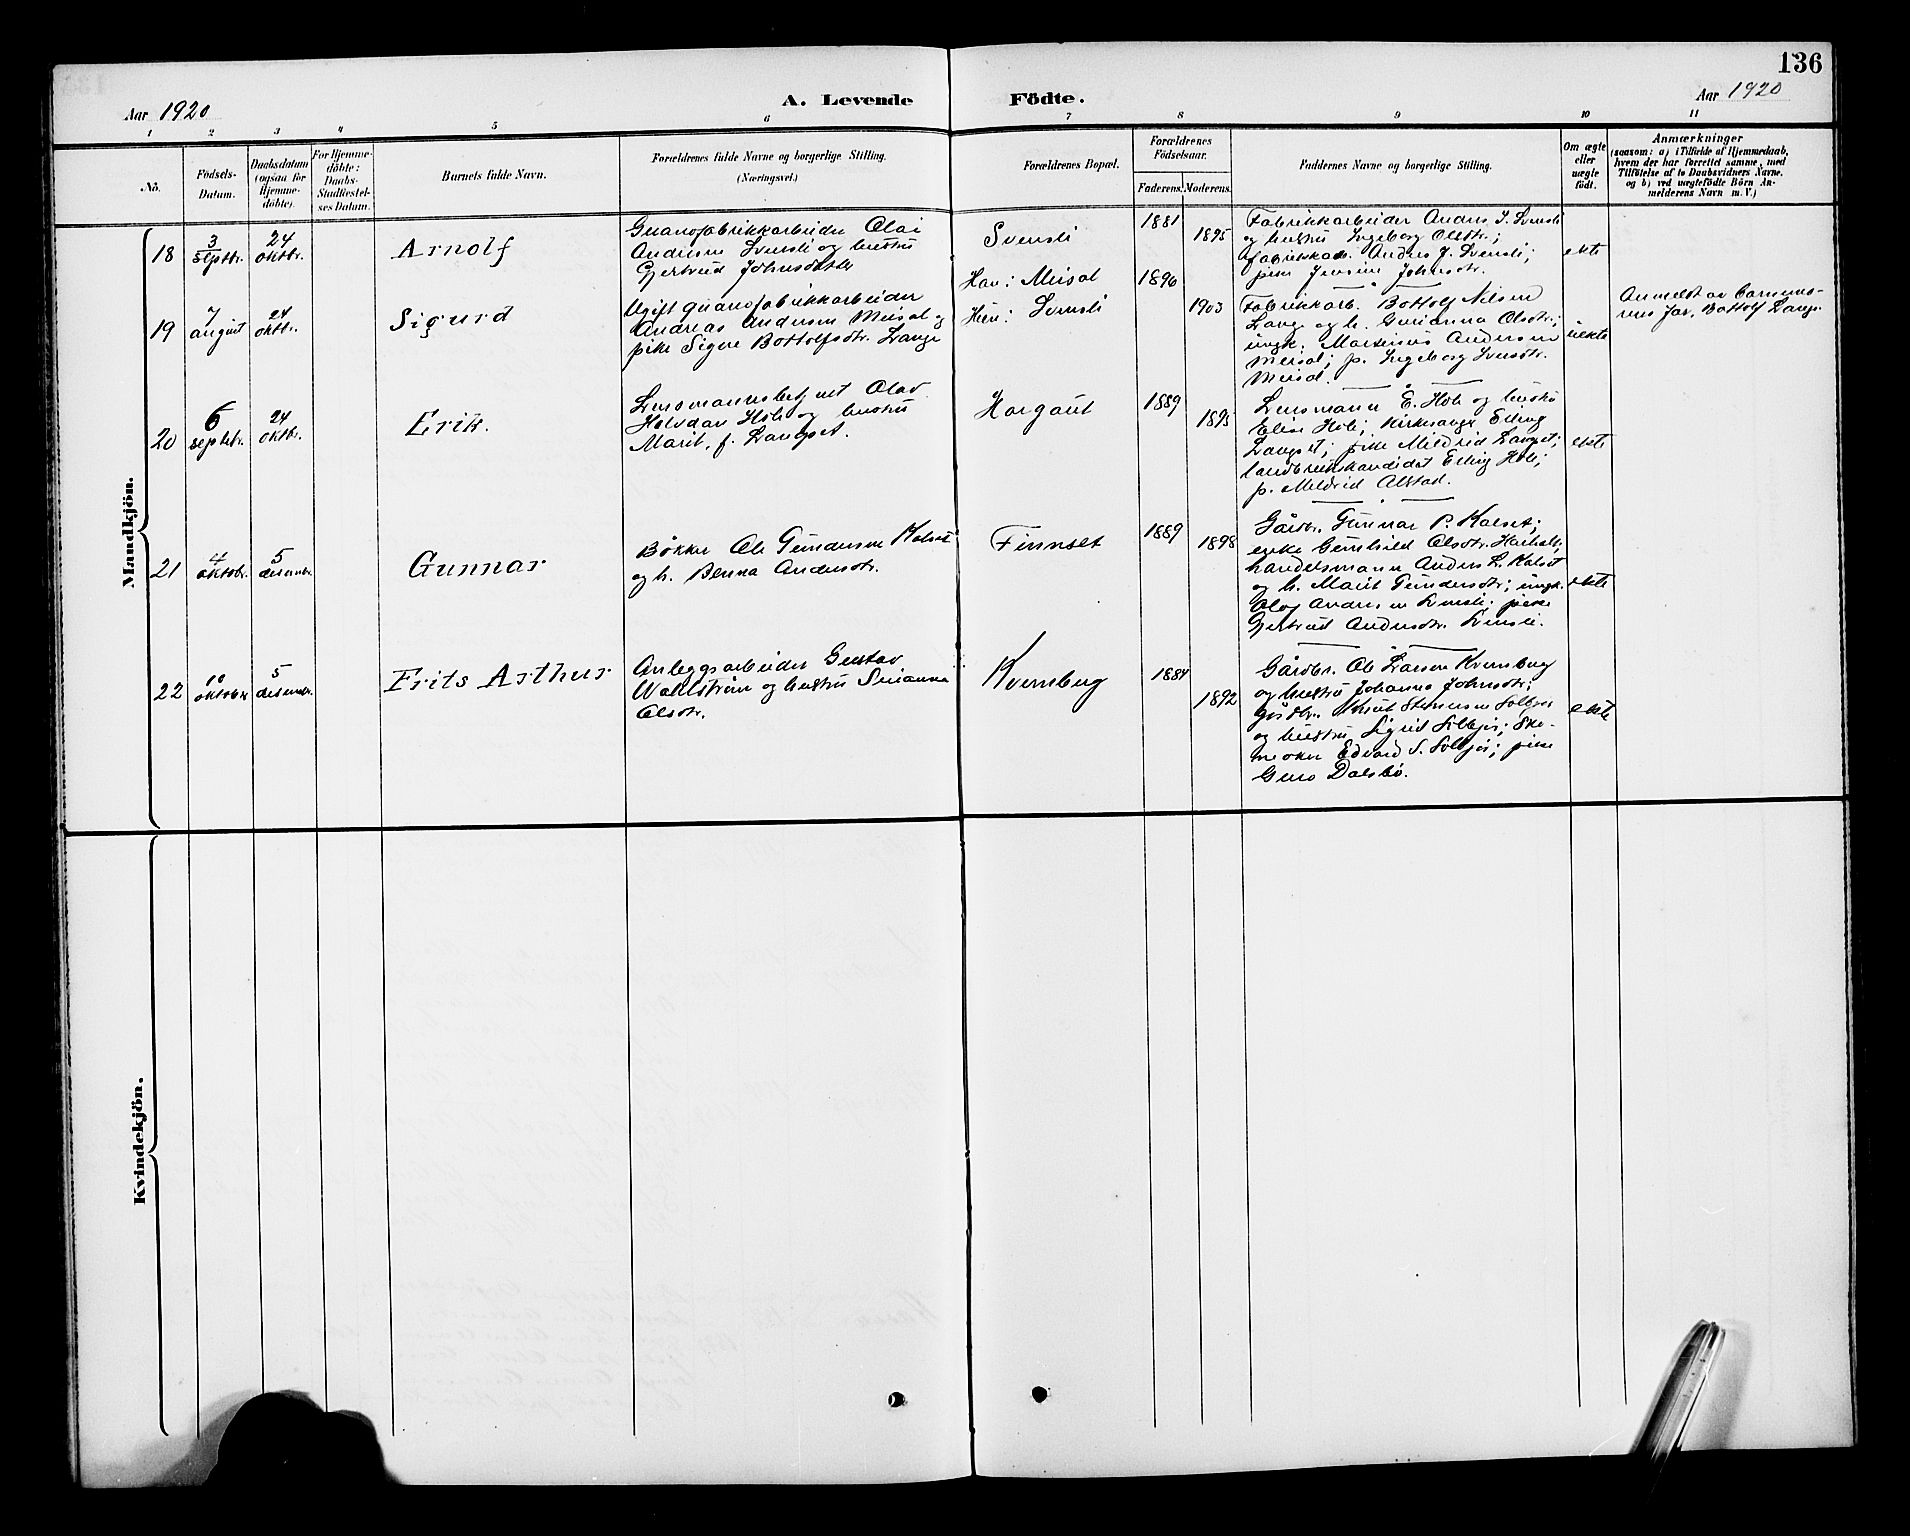 136
Aar 1920
A. Levende Födte.
Aar 1920
1 2 3 4 5 6 7 8 9 10 11
No.
Födsels-
Datum.
Daabsdatum
(ogsaa for
Hjemme-
döbte).
For Hjemme-
döbte:
Daabs-
Stadfæstel-
ses Datum.
Barnets fulde Navn.
Forældrenes fulde Navne og borgerlige Stilling.
(Næringsvei.)
Forældrenes Bopæl.
Forældrenes
Födselsaar.
Faderens. Moderens.
Faddernes Navne og borgerlige Stilling.
Om ægte
eller
uægte
födt.
Anmærkninger
(saasom: a) i Tilfælde af Hjemmedaab,
hvem der har forrettet samme, med
Tilföielse af to Daabsvidners Navne,
og b) ved uægtefödte Börn An-
melderens Navn m. V.)
Mandkjön.
18
3
septbr.
24
oktbr.
Arnolf
Guanofabrikkarbeider Olai
Andersen Svensli og hustru
Gjertrud Johnsdatter
Svensli
1881
1895
Fabrikkarbeider Anders J. Svensli
og hustru Ingeborg Olsdtr.;
fabrikkarb. Anders J. Svensli;
pike Jensine Johnsdtr.
ekte
19
7
august
24
oktbr.
Sigurd
Ugift guanofabrikkarbeider
Andreas Andersen Meisal og
pike Signe Bottolfsdtr. Lange
Han: Meisal
Hun: Svensli
1896
1903
Fabrikkarb. Bottolf Nilsen
Lange og h. Gurianna Olsdtr.;
ungk. Martinus Andersen
Meisal; p. Ingeborg Iversdtr.
Meisal.
uekte
Anmeldt av barnemo-
rens far, Bottolf Lange
20
6
septbr.
24
oktbr.
Erik.
Lensmannsbetjent Olav
Halvdan Hole og hustru
Marit, f. Langset.
Horgaut
1889
1895
Lensmann E. Hole og hustru
Elise Hole; kirkesanger Erling
Langset; pike Mildrid Langset;
landbrukskandidat Erling Hole;
p. Mildrid Alstad.
ekte
21
4
oktobr.
5
desembr.
Gunnar
Bøkker Ole Gundersen Kalset
og h. Berna Andersdtr.
Finnset
1889
1898
Gårdbr. Gunnar P. Kalset;
enke Gunhild Olsdtr.
handelsmann Anders L. Kalset
og h. Marit Gundersdtr; ungk.
Olaf Andersen Svensli; pike
Gjertrud Andersdtr. Svensli.
ekte
22
10
oktober
5
desembr.
Frits Arthur
Anleggsarbeider Gustav
Wahlstrøm og hustru Surianna
Olsdtr.
Kvernberg
1884
1892
Gårdbr. Ole Larsen Kvernberg
og hustru Johanna Johnsdtr;
gårdbr. Knut Stenersen Solbjør
og hustru Sigrid Solbjør; sko-
maker Edvard S. Solbjør; pike
Guro Dalsbø.
ekte
Kvindekjön.